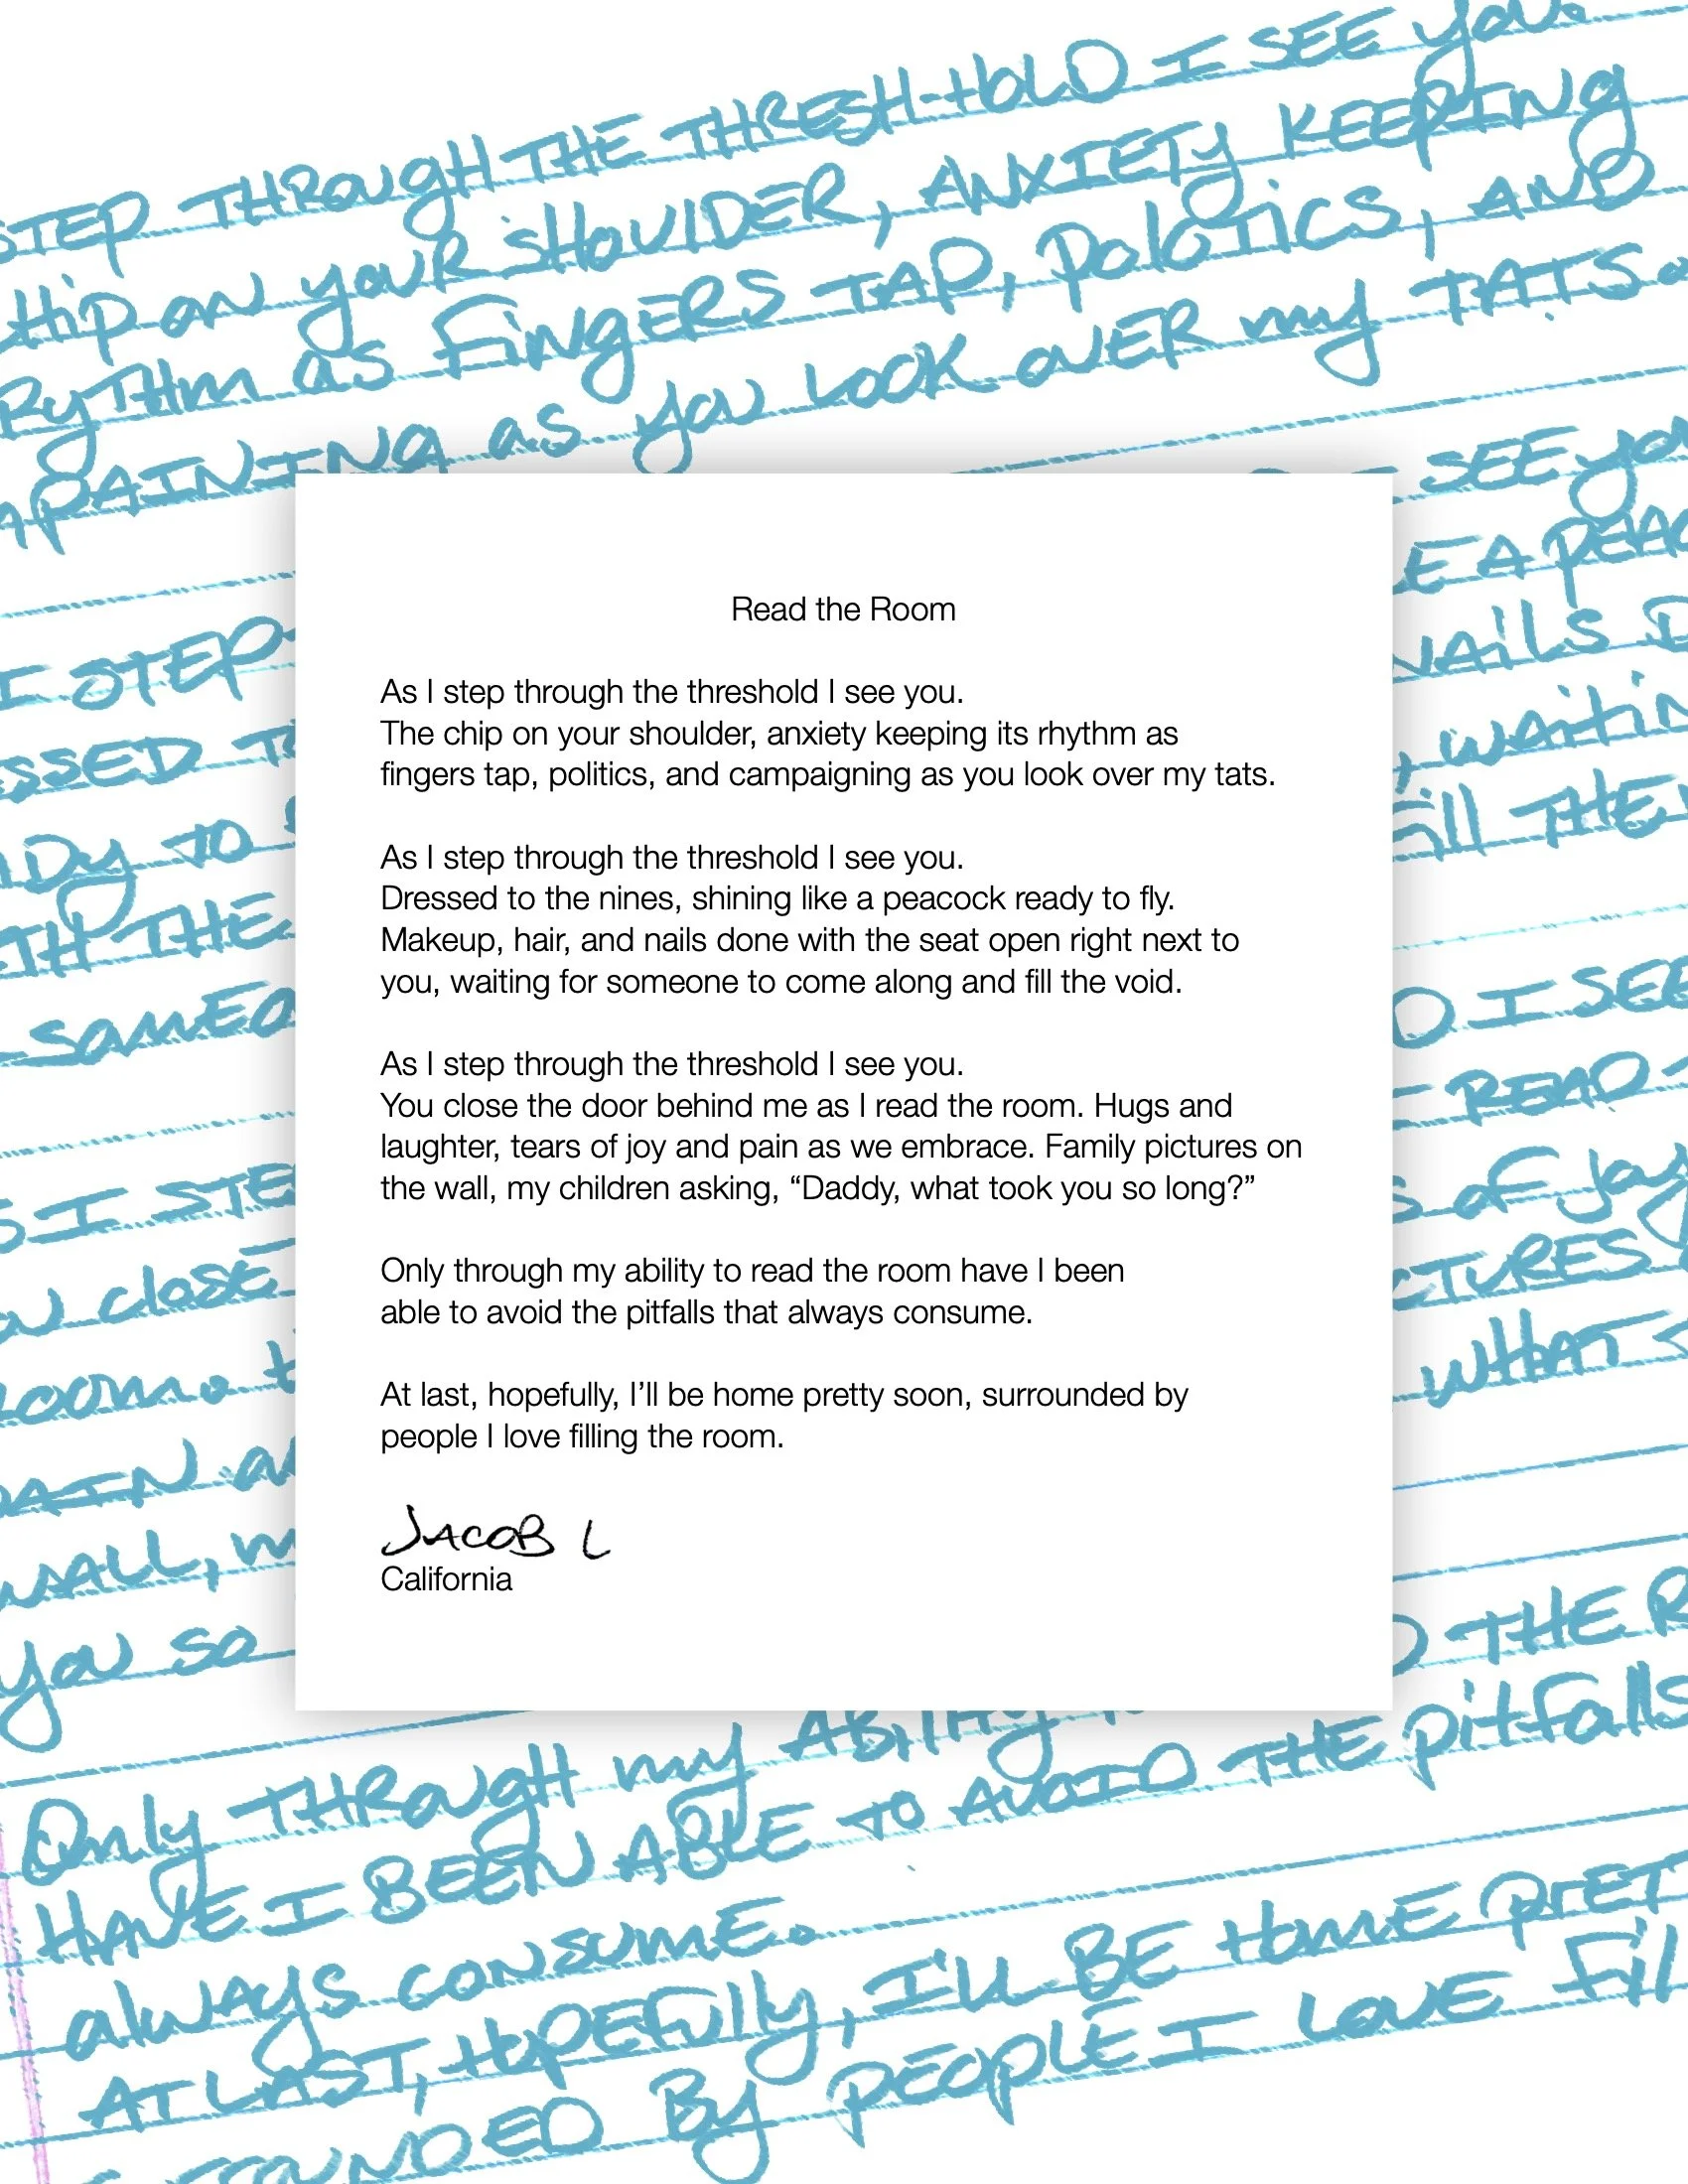 STEP THROUGH THE THRESH-HOLD I SEE you.
HIP ON yOUR SHOULDER, ANXIETy KEEPING
RyTHm as FiNgERS TAP, PoloTiCS, AND
APAINING as you LOOK OVER my TATS.
SEE you
I STEP
E A PEAC
SSED T
NAilS D
Dy TO
, waitin
TH THE
ill THE
SOMEO
Read the Room
As I step through the threshold I see you.
The chip on your shoulder, anxiety keeping its rhythm as
fingers tap, politics, and campaigning as you look over my tats.
As I step through the threshold I see you.
Dressed to the nines, shining like a peacock ready to fly.
Makeup, hair, and nails done with the seat open right next to
you, waiting for someone to come along and fill the void.
As I step through the threshold I see you.
You close the door behind me as I read the room. Hugs and
laughter, tears of joy and pain as we embrace. Family pictures on
the wall, my children asking, “Daddy, what took you so long?”
Only through my ability to read the room have I been
able to avoid the pitfalls that always consume.
At last, hopefully, I’ll be home pretty soon, surrounded by
people I love filling the room.
JACOB L
California
D I SEE
READ
S I STE
S oF Joy
u close
CTURES
oom. H
WHAT
AIN a
WALL, m
you so
D THE R
Only THROugH my ABiliTy
HAVE I BEEN ABLE TO AVOID THE pitfalls
always CONSUME.
AT LAST, HOPEFully, I'll BE HOME PRET
OUNDED By PEOPLE I LOVE Fil